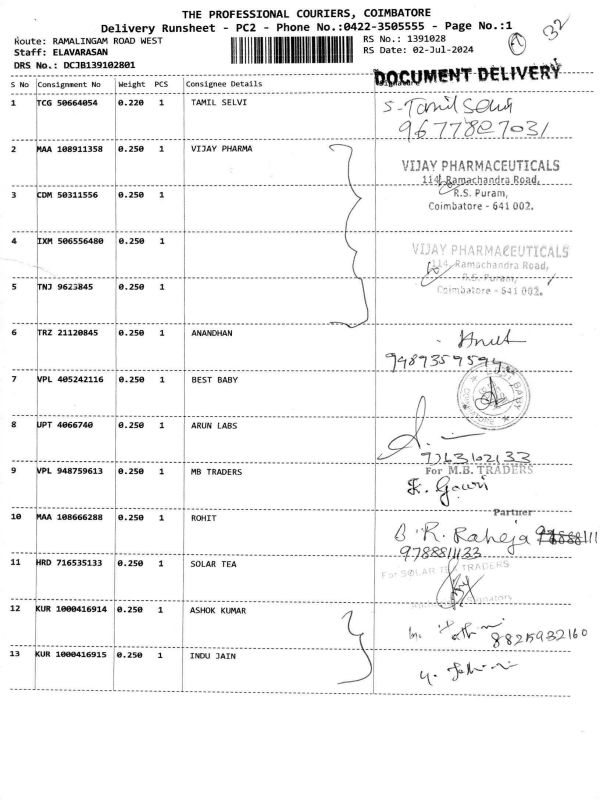 THE PROFESSIONAL COURIERS, COIMBATORE
Delivery Runsheet - PC2 - Phone No.:0422-3505555 - Page No.:1
32
Route: RAMALINGAM ROAD WEST RS No.: 1391028
Staff: ELAVARASAN RS Date: 02-Jul-2024
DRS No.: DCJB139102801
DOCUMENT DELIVERY
S No Consignment No Weight PCS Consignee Details Signature
1 TCG 50664054 0.220 1 TAMIL SELVI S. Tamil Selvi
9677807031
2 MAA 108911358 0.250 1 VIJAY PHARMA
VIJAY PHARMACEUTICALS
114, Ramachandra Road,
3 CDM 50311556 0.250 1 R.S. Puram,
Coimbatore - 641 002.
4 IXM 506556480 0.250 1
VIJAY PHARMACEUTICALS
114, Ramachandra Road,
R.S. Puram,
5 TNJ 9623845 0.250 1 Coimbatore - 641 002.
6 TRZ 21120845 0.250 1 ANANDHAN
9489359594
7 VPL 405242116 0.250 1 BEST BABY
BABY
8 UPT 4066740 0.250 1 ARUN LABS
9363102133
9 VPL 948759613 0.250 1 MB TRADERS For M.B. TRADERS
K. Gowri
Partner
10 MAA 108666288 0.250 1 ROHIT B. R. Raheja
9788811133
11 HRD 716535133 0.250 1 SOLAR TEA For SOLAR TEA TRADERS
12 KUR 1000416914 0.250 1 ASHOK KUMAR
8825932160
13 KUR 1000416915 0.250 1 INDU JAIN